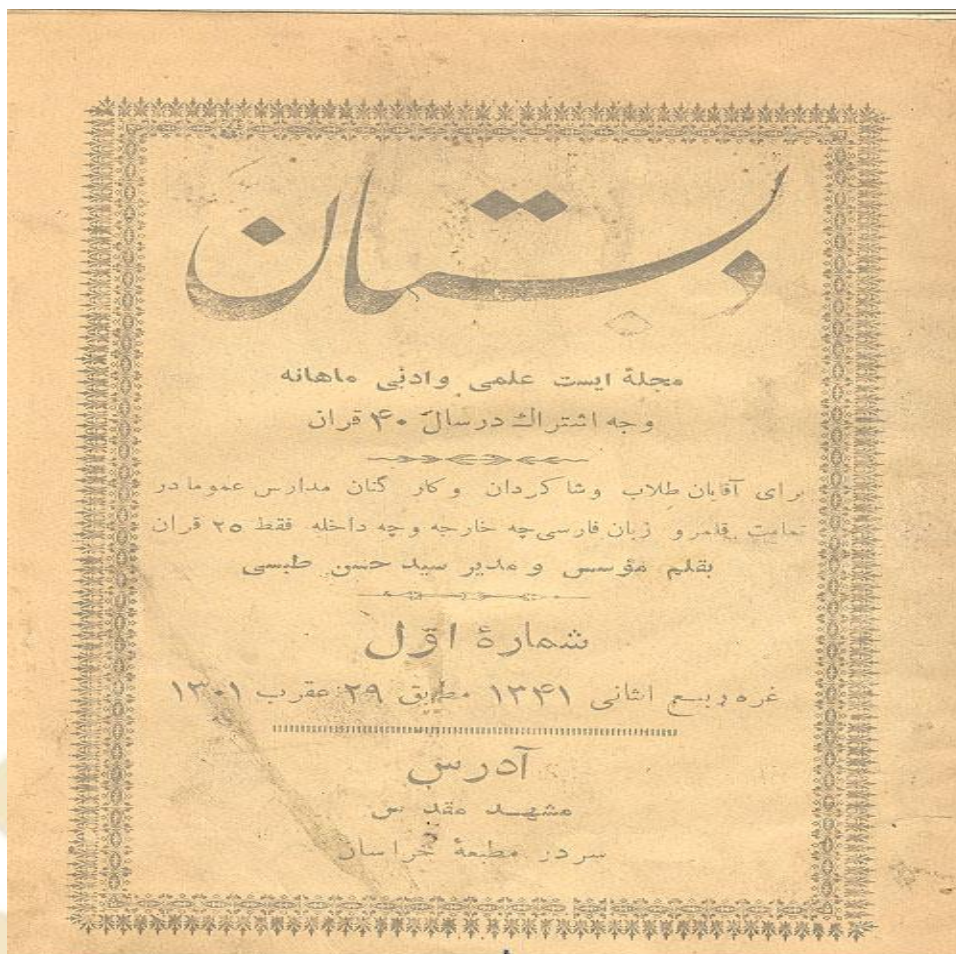 دبستان
مجلهٔ ایست علمی وادبی ماهانه
وجه اشتراك در سال ۴۰ قران
برای آقایان طلاب وشاکردان وکار کنان مدارس عموما در
تمامت قلمرو زبان فارسی چه خارجه وچه داخله فقط ۲۵ قران
بقلم مؤسس و مدیر سید حسن طبسی
شمارهٔ اوّل
غره ربیع الثانی ۱۳۴۱ مطابق ۲۹ عقرب ۱۳۰۱
آدرس
مشهد مقدس
سردر مطبعهٔ خراسان